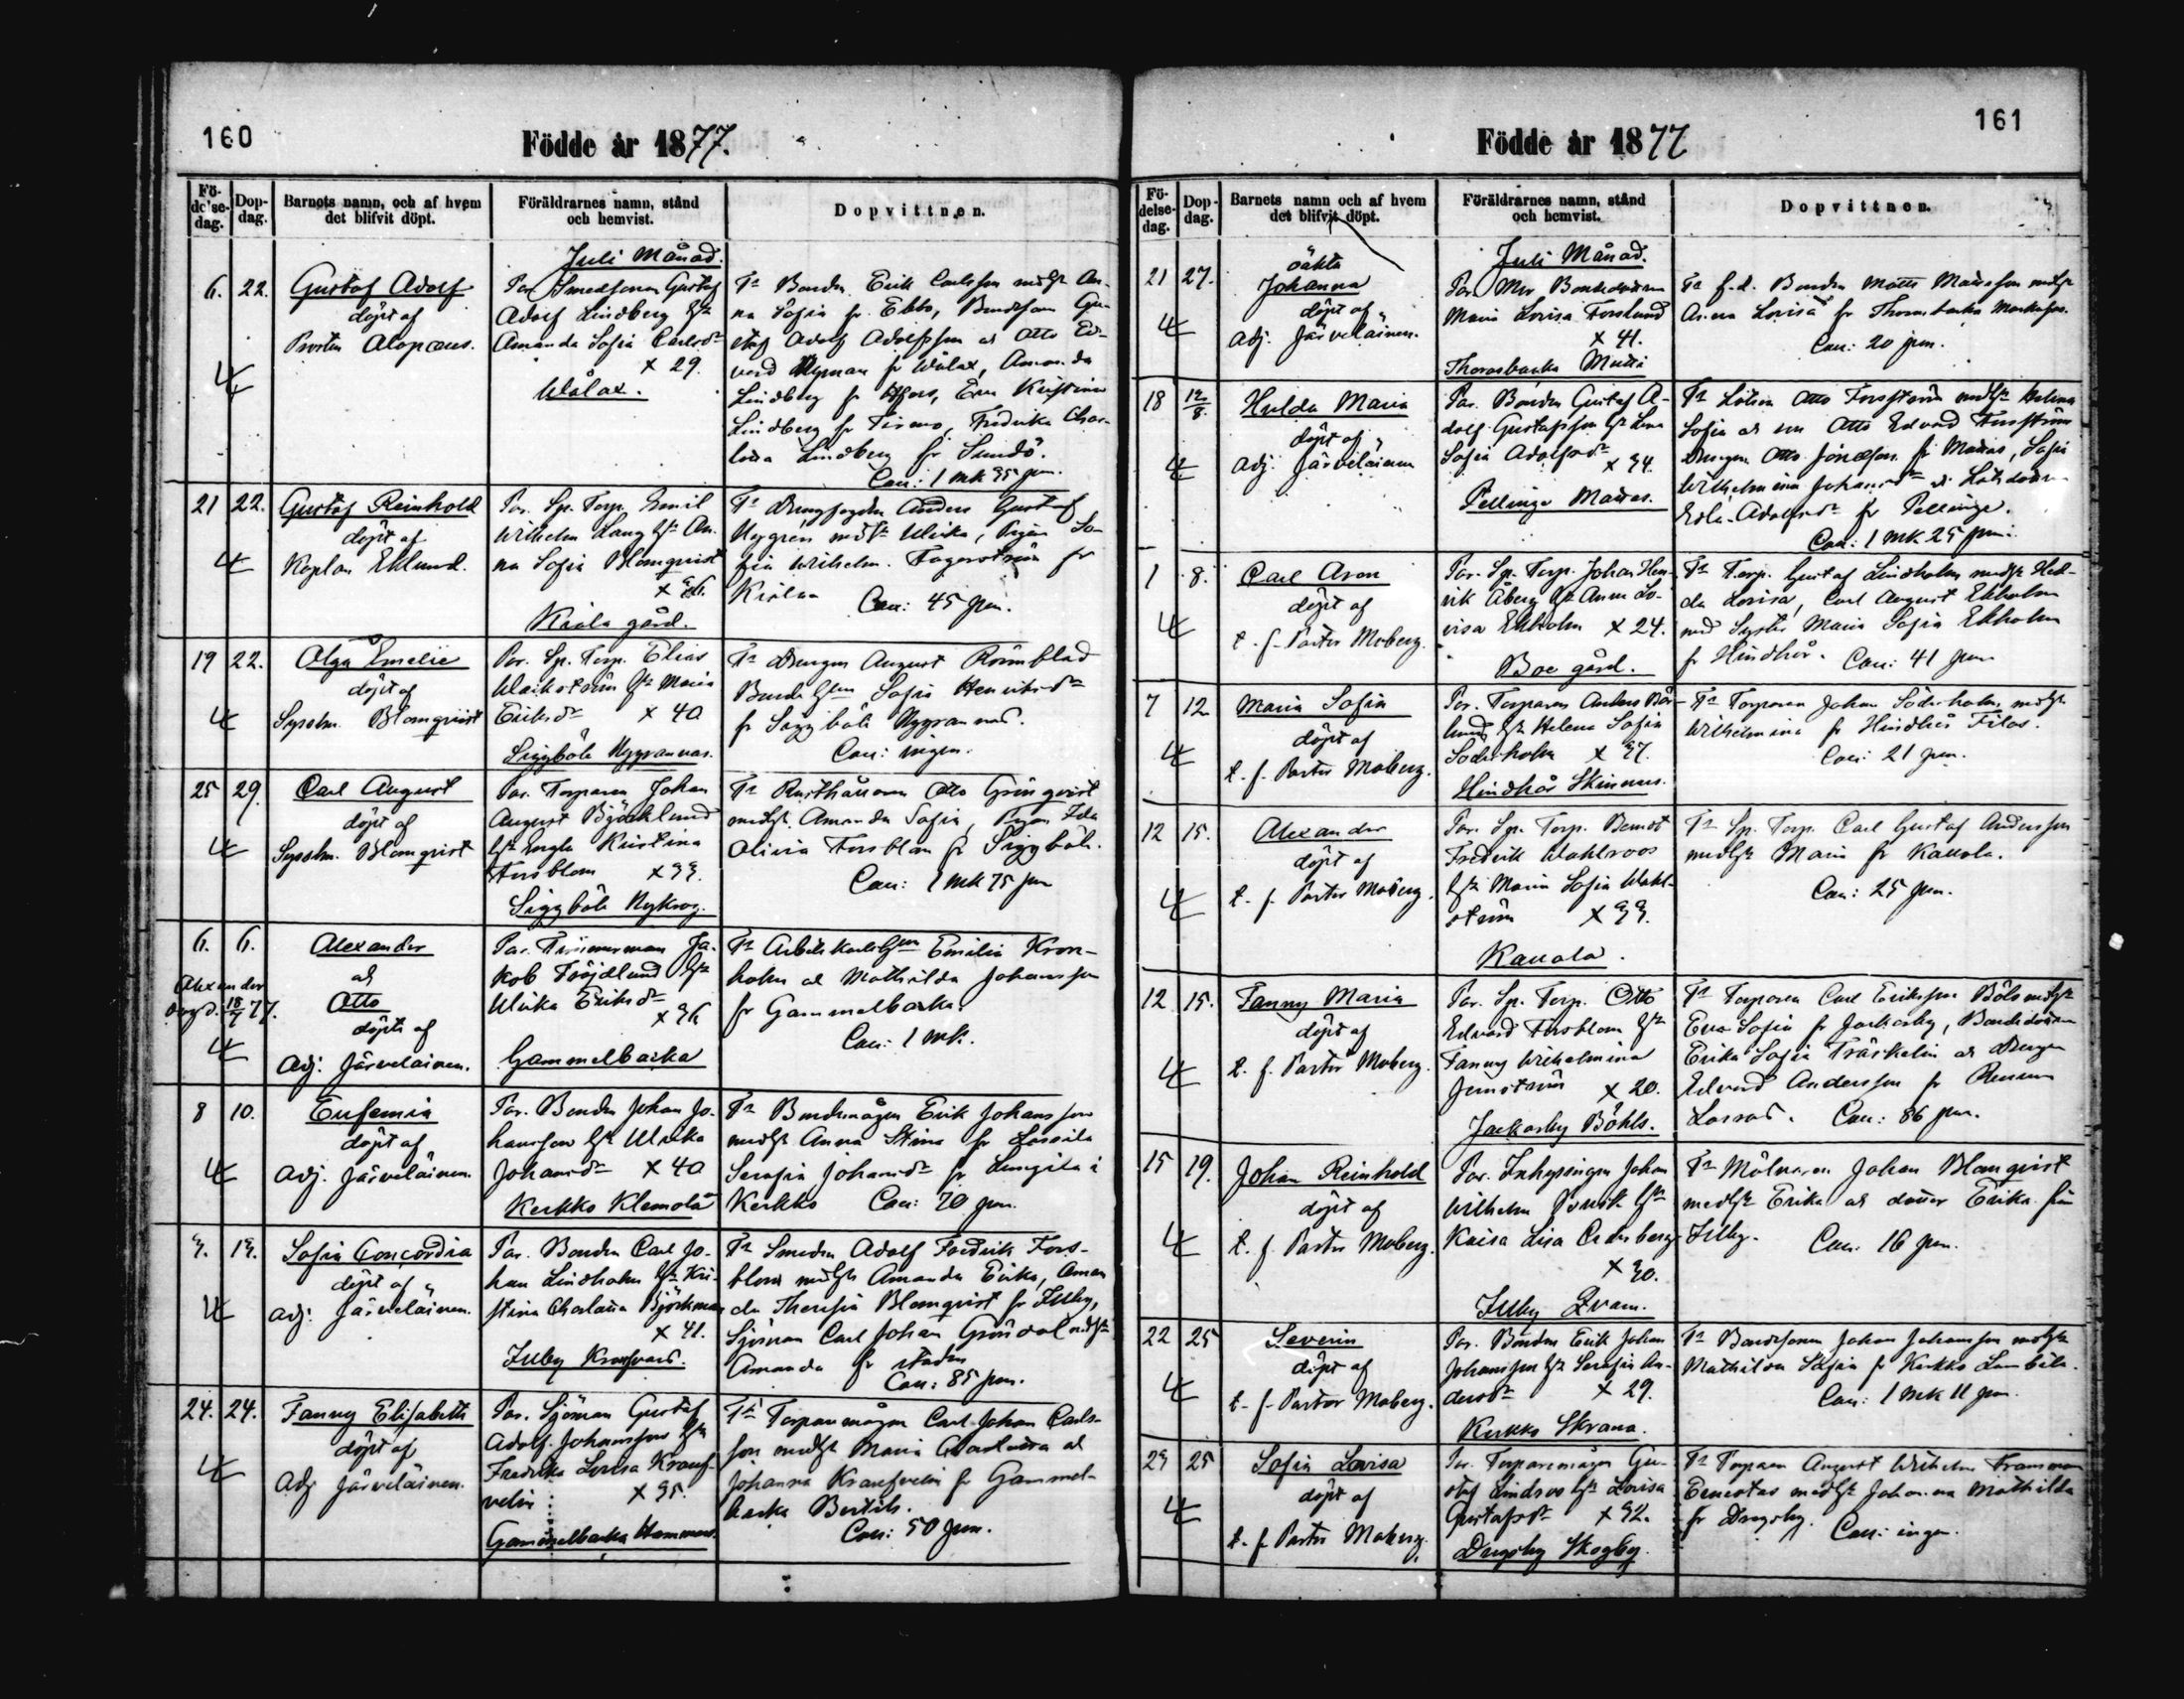 160
Födde år 1877.
Fö-
delse-
dag.
Dop-
dag.
Barnets namn, och af hvem
det blifvit döpt.
Föräldrarnes namn, stånd
och hemvist.
Dopvittnen.
Juli Månad.
6. 22.
Gustaf Adolf
döpt af
Prosten Alopæus.
Par. Smedsonen Gustaf
Adolf Lindberg hst
Amanda Sofia Carlsdr
x 29.
Wålax.
Tn Bonden Erik Carlsson medhst An-
na Sofia fr. Ebbo, Bondsonen Gu-
staf Adolf Adolfsson och Otto Ed-
vard Nyman fr Wålax, Amanda
Lindberg fr Hfors, Eva Kristina
Lindberg fr Tirmo, Fredrika Char-
lotta Lindberg fr Sundö.
Coll: 1 mk 35 pen.
21 22.
Gustaf Reinhold
döpt af
Kaplan Eklund.
Par. Sp. Torp. Emil
Wilhelm Lang hst An-
na Sofia Blomqvist
Kiala gård.
Tn Drängfogden Anders Gustaf
Nygren medhst Ulrika, Pigan So-
fia Wilhelm. Fagerström fr
Kiala
Coll: 45 pen.
19 22.
Olga Emelie
döpt af
Sysslm. Blomqvist
Par. Sp. Torp. Elias
Wackström hst Maria
Eriksdr x 40
Siggböle Nygrannas.
Tn Drängen August Rönnblad
Bondehstn Sofia Henriksdr
fr Siggböle Nygrannas.
Coll: ingen.
25 29.
Carl August
döpt af
Sysslm. Blomqvist
Par. Torparen Johan
August Björklund
hst Engla Kristina
Forsblom x 33.
Siggböle Nykrog.
Tn Rusthållaren Otto Grönqvist
medhst Amanda Sofia, Pigan Ida
Olivia Forsblom fr Siggböle.
Coll: 1 mk 75 pen
6. 6.
Alexander
och
Otto
döpte af
Adj. Järveläinen.
Alexander
död 18/7 77.
Par. Timmerman Ja-
kob Fröjdlund hst
Ulrika Eriksdr
x 36
Gammelbacka
Tn Arbetskarlshstn Emilia Kron-
holm och Mathilda Johansson
fr Gammelbacka.
Coll: 1 mk.
8 10.
Eufemia
döpt af
Adj. Järveläinen.
Par. Bonden Johan Jo-
hansson hst Ulrika
Johansdr x 40
Kerkko Klemola
Tn Bondemågen Erik Johansson
medhst Anna Stina fr Lassila
Serafia Johansdr fr Lungila i
Kerkko Coll: 70 pen.
3. 13.
Sofia Concordia
döpt af
Adj. Järveläinen.
Par. Bonden Carl Jo-
han Lindholm hst Kri-
stina Charlotta Björkman
x 41.
Illby Krogsvars.
Tn Smeden Adolf Fredrik Fors-
blom medhst Amanda Erika, Aman
da Theresia Blomqvist fr Illby,
Sjöman Carl Johan Gröndal medhst
Amanda fr staden
Coll: 85 pen.
24. 24.
Fanny Elisabeth
döpt af
Adj Järveläinen.
Par. Sjöman Gustaf
Adolf Johansson hst
Fredrika Lovisa Kranf-
velin x 35.
Gammelbacka Hammars
Tn Torparemågen Carl Johan Carls-
son medhst Maria Charlotta och
Johanna Kranfvelin fr Gammel-
backa Bertils.
Coll: 50 pen.
161
Födde år 1877
Fö-
delse-
dag.
Dop-
dag.
Barnets namn och af hvem
det blifvit döpt.
Föräldrarnes namn, stånd
och hemvist.
Dopvittnen.
Juli Månad.
21 27.
oäkta
Johanna
döpt af
Adj. Järveläinen.
Par. Mor Bondedottern
Maria Lovisa Forslund
x 41.
Thorasbacka Matti
Tn f.d. Bonden Matts Mattsson medhst
Anna Lovisa fr Thorasbacka
Coll: 20 pen.
18 12/8.
Hulda Maria
döpt af
Adj. Järveläinen
Par. Bonden Gustaf A-
dolf Gustafsson hst Lena
Sofia Adolfsdr x 34.
Pellinge Mattas.
Tn Lotsen Otto Forsström medhst Helena
Sofia och son Otto Edvard Forsström
Drängen Otto Jonasson fr Mattas, Sofia
Wilhelmina Johansdr och Lotsdottern
Edla Adolfsdr fr Pellinge.
Coll: 1 mk 25 pen.
1 8.
Carl Aron
döpt af
t. f. Pastor Moberg.
Par. Sp. Torp. Johan Hen-
rik Åberg hst Anna Lo-
visa Ekholm x 24.
Boe gård.
Tn Torp. Gustaf Lindholm medhst Hed-
da Lovisa, Carl August Ekholm
med Syster Maria Sofia Ekholm
fr Hindhår. Coll: 41 pen
7 12
Maria Sofia
döpt af
t. f. Pastor Moberg.
Par. Torparen Anders Bär-
lund hst Helena Sofia
Söderholm x 37.
Hindhår Skinnars.
Tn Torparen Johan Söderholm medhst
Wilhelmina fr Hindhår Filas.
Coll: 21 pen.
12 15.
Alexander
döpt af
t. f. Pastor Moberg.
Par. Sp. Torp. Berndt
Fredrik Wahlroos
hst Maria Sofia Wahl-
ström x 33.
Kallola.
Tn Sp. Torp. Carl Gustaf Andersson
medhst Maria fr Kallola.
Coll: 25 pen.
12 15.
Fanny Maria
döpt af
t. f. Pastor Moberg.
Par. Sp. Torp. Otto
Edvard Forsblom hst
Fanny Wilhelmina
Jernström x 20.
Jackarby Böhls.
Tn Torparen Carl Eriksson Böls medhst
Eva Sofia fr Jackarby, Bondedottern
Erika Sofia Träskelin och Drengen
Edvard Andersson fr
Lassas. Coll: 86 pen.
15 19.
Johan Reinhold
döpt af
t. f. Pastor Moberg.
Par. Inhysingen Johan
Wilhelm hst
Kaisa Lisa Cederberg
x 30.
Illby
Tn Målaren Johan Blomqvist
medhst Erika och dotter Erika från
Illby. Coll: 16 pen.
22 25
Severin
döpt af
t. f. Pastor Moberg.
Par. Bonden Erik Johan
Johansson hst Serafia An-
dersdr x 29.
Kerkko Skrana.
Tn Bondsonen Johan Johansson medhst
Mathilda Sofia fr Kerkko
Coll: 1 mk 11 pen.
23 25
Sofia Lovisa
döpt af
t. f. Pastor Moberg.
Par. Torparemågen Gu-
staf Lindroos hst Lovisa
Gustafsdr x 32.
Drägsby Skogby.
Tn Torparen August Wilhelm Framman
Ernestas medhst Johanna Mathilda
fr Drägsby. Coll: ingen.